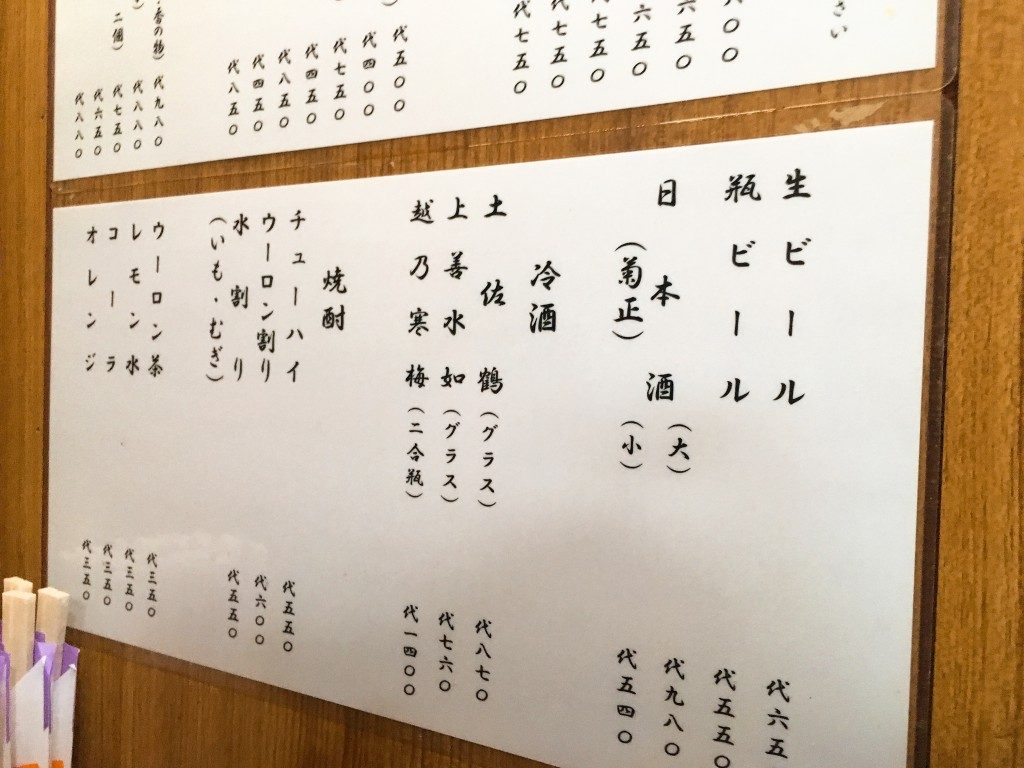 さい
〇〇
六五〇
六五〇
五〇
七五〇
代七五〇
代五〇〇
代四〇〇
代七五〇
代四五〇
代八五〇
代四五〇
代八五〇
・香の物) 代九八〇
代八八〇
二個) 代七五〇
代六五〇
代八八〇
生ビール 代六五
瓶ビール 代五五〇
日本酒(大) 代九八〇
(菊正) (小) 代五四〇
冷酒
土佐鶴(グラス) 代八七〇
上善水如(グラス) 代七六〇
越乃寒梅(二合瓶) 代一四〇〇
焼酎
チューハイ 代五五〇
ウーロン割り 代六〇〇
水割り 代五五〇
(いも・むぎ)
ウーロン茶 代三五〇
レモン水 代三五〇
コーラ 代三五〇
オレンジ 代三五〇